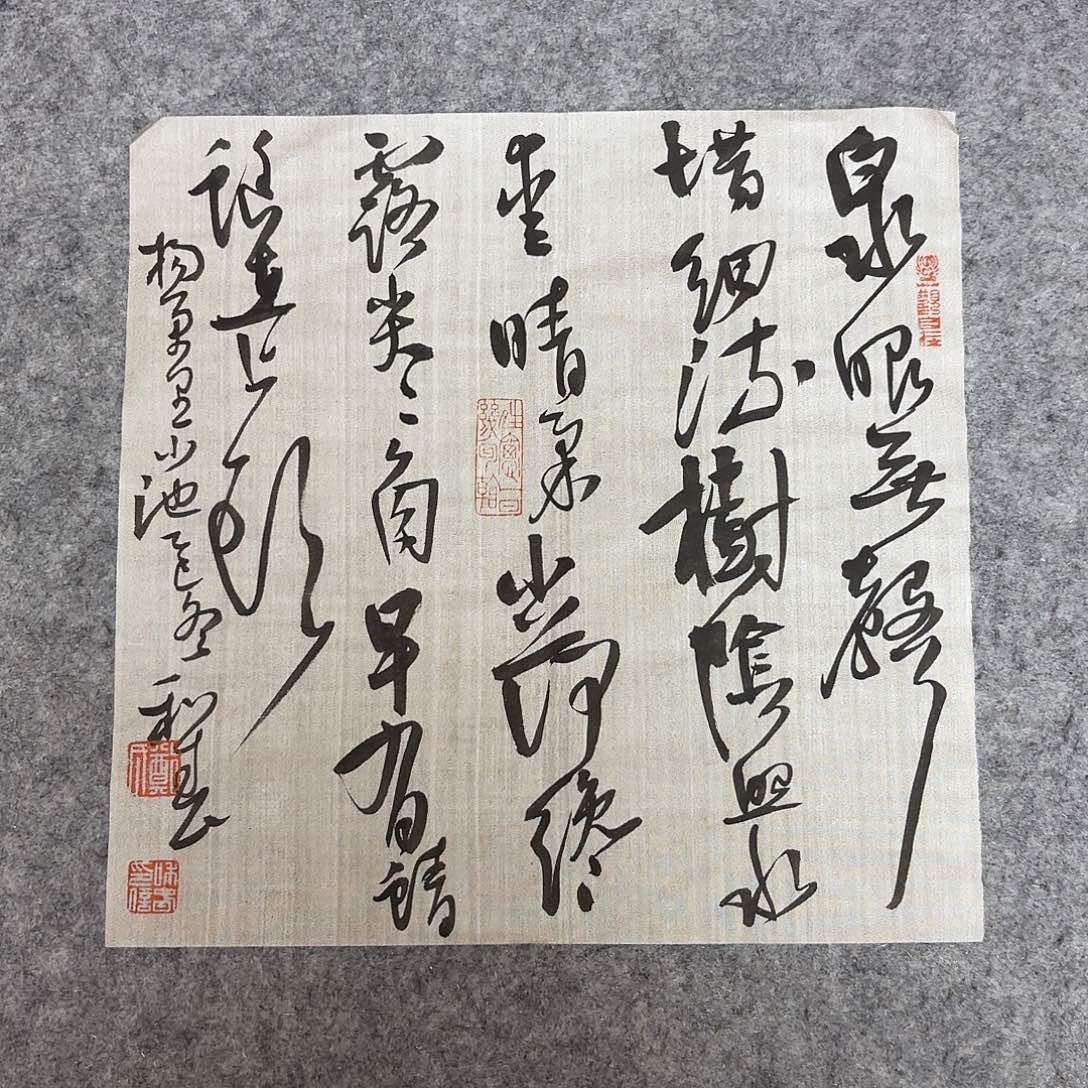 泉眼無聲
惜細流樹陰照水
愛晴柔小荷纔
露尖〻角早有蜻
蜓立上頭
楊萬里小池